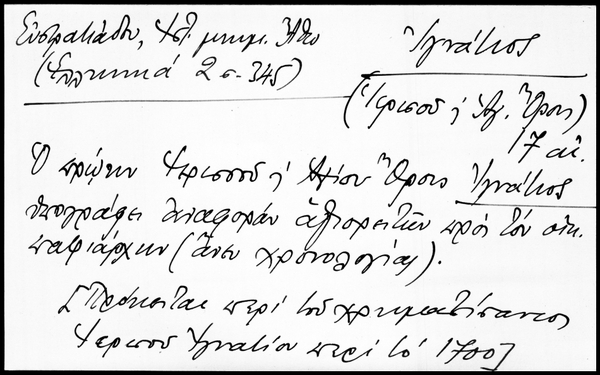 Εὐστρατιάδου, Ἱστ. μνημ. Ἄθω
(Ἑλληνικά 2 σ. 345)
Ἰγνάτιος
(Ἱερισσοῦ ἢ Ἁγ. Ὄρους)
17 αἰ.
Ὁ πρώην Ἱερισσοῦ ἢ Ἁγίου Ὄρους Ἰγνάτιος
ὑπογράφει ἀναφοράν ἁγιορειτῶν πρός τόν οἰκ.
πατριάρχην (ἄνευ χρονολογίας).
[Πρόκειται περί τοῦ χρηματίσαντος
Ἱερισσοῦ Ἰγνατίου περί τό 1700]